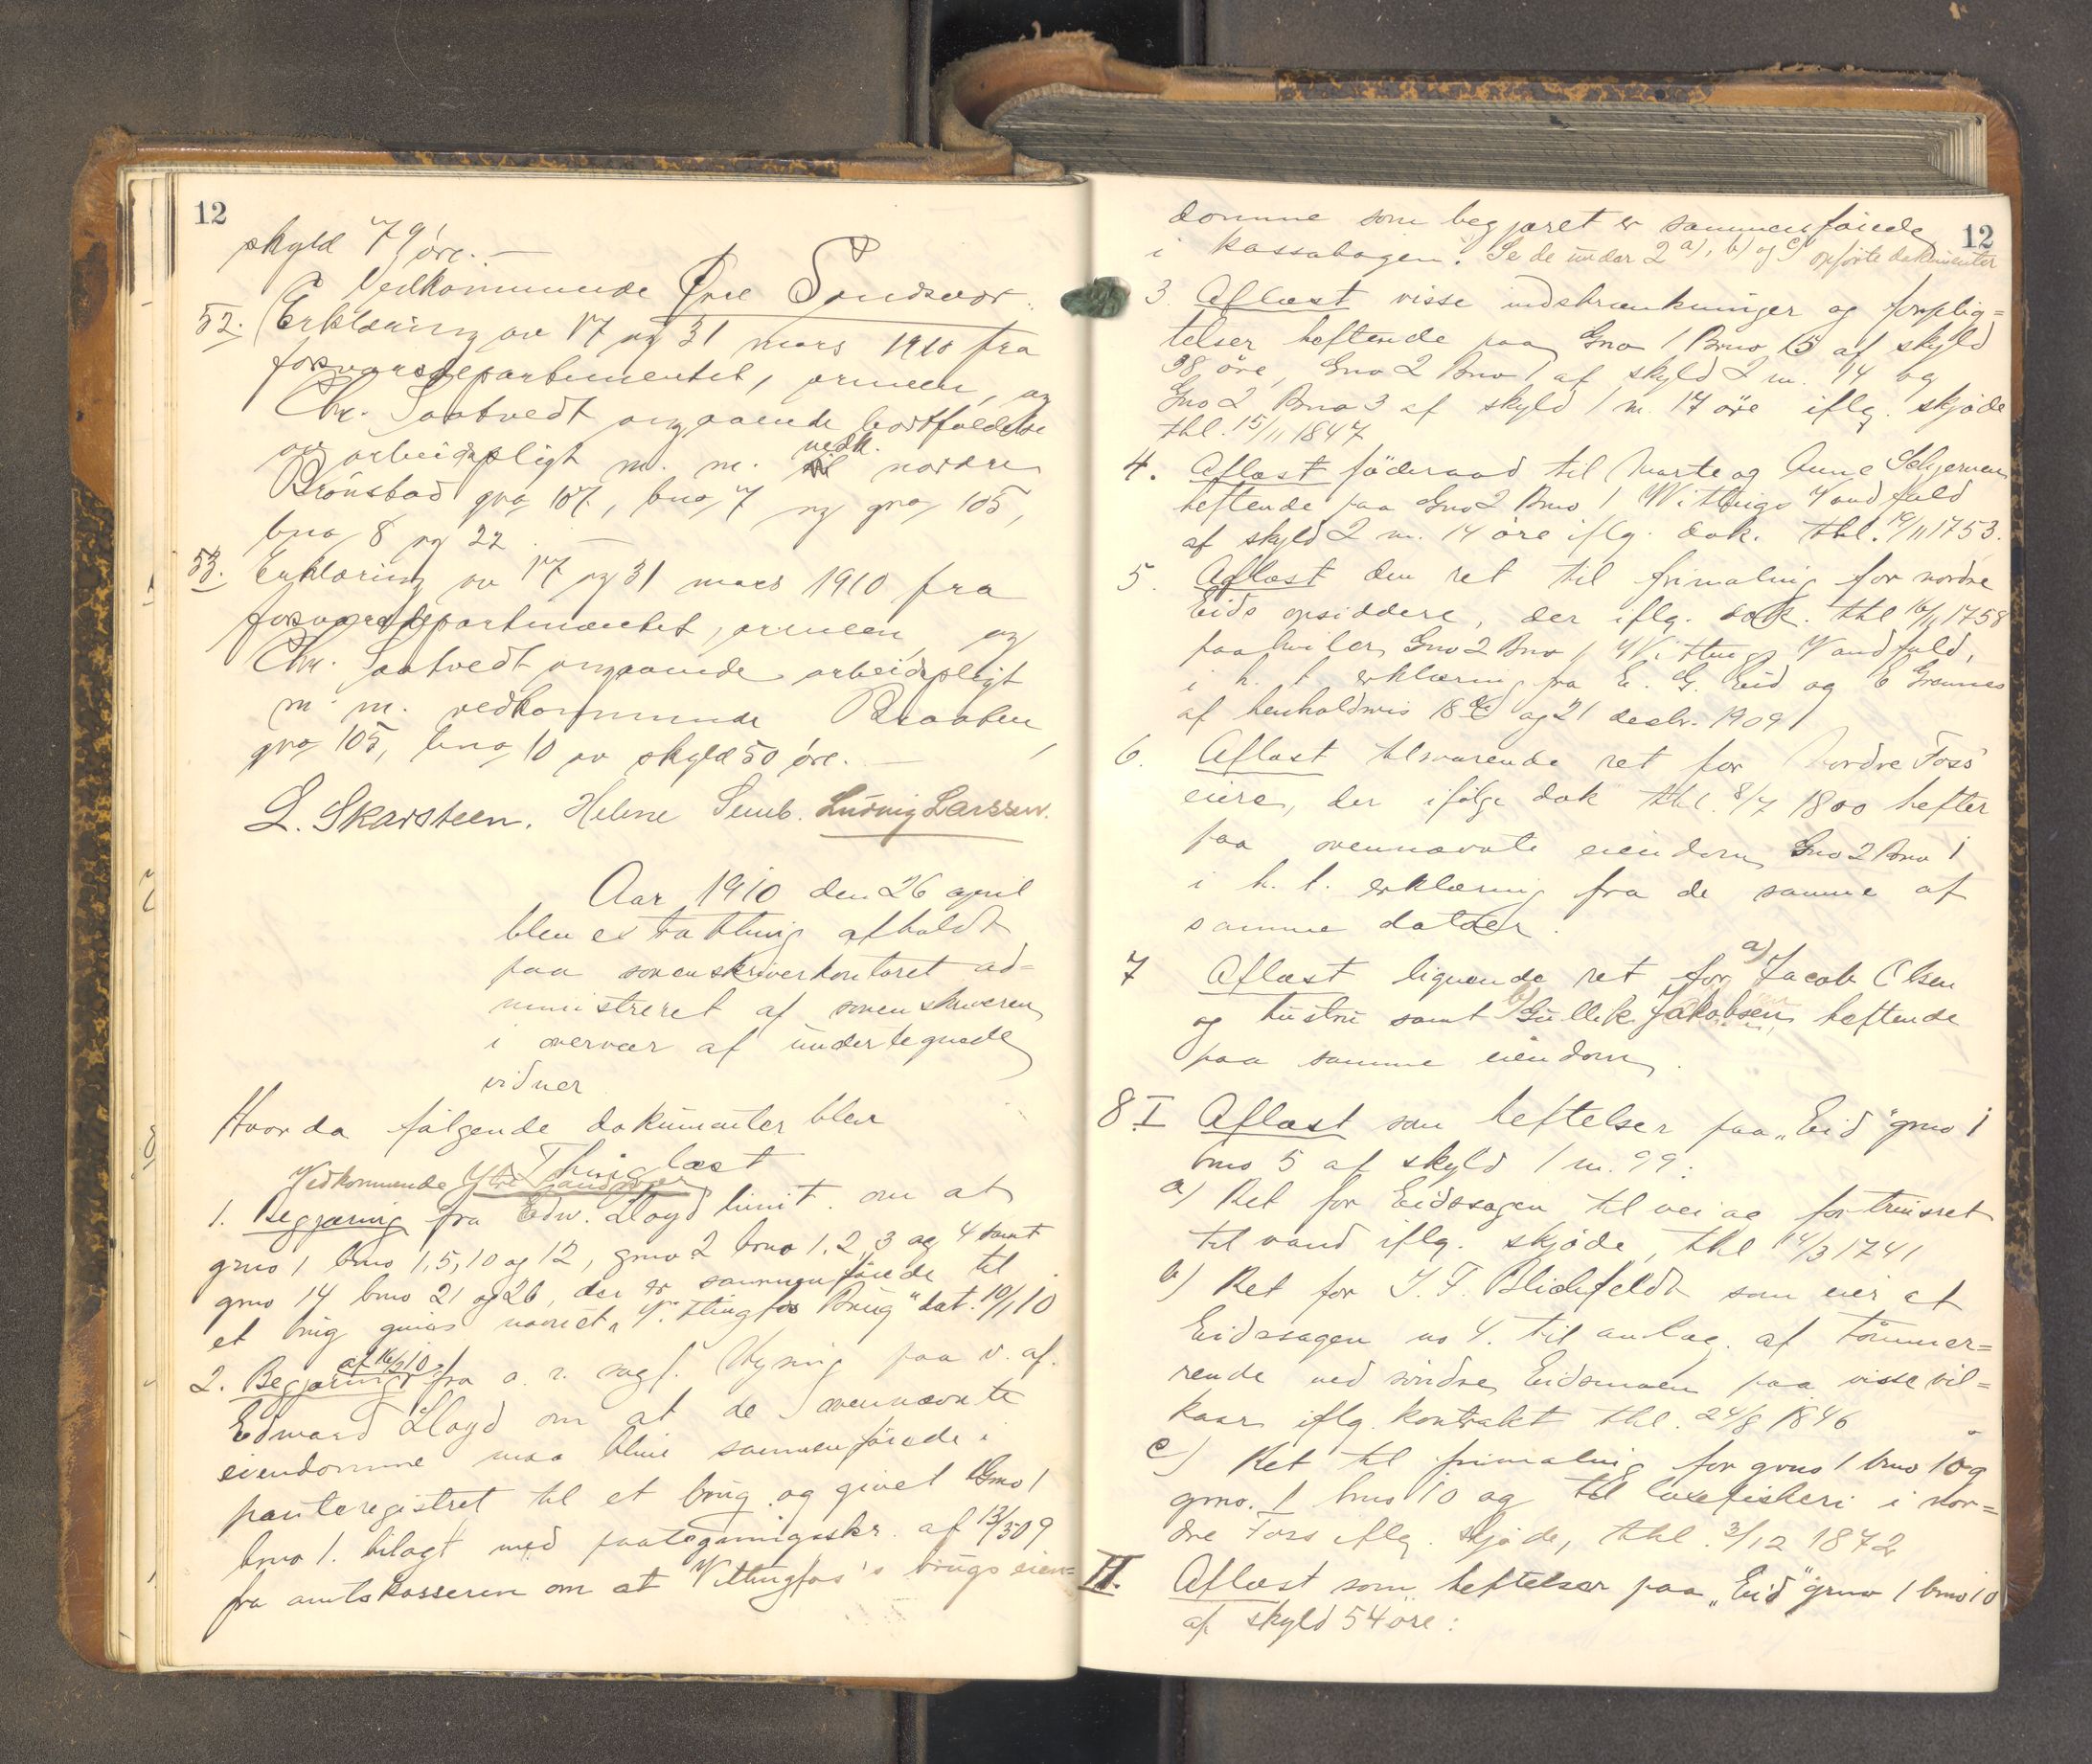 12
skyld 79 øre. —
Vedkommende Øvre Sandsvær.
52. Erklæring av 17 og 31 mars 1910 fra
forsvarsdepartementet, armeen, og
Chr. Saatvedt angaaende bortfaldelse
av arbeidspligt m. m. vedk. nordre
Brønstad gno 107, bno 7 og gno 105,
bno 8 og 22. —
53. Erklæring av 17 og 31 mars 1910 fra
forsvarsdepartementet, armeen, og
Chr. Saatvedt angaaende arbeidspligt
m. m. vedkommende Braaten,
gno 105, bno 10 av skyld 50 øre. —
L. Skarsteen. Helene Semb. Ludvig Larssen.
Aar 1910 den 26 april
blev extrathing afholdt
paa sorenskriverkontoret ad=
ministreret af sorenskriveren
i overvær af undertegnede
vidner
Hvorda følgende dokumenter blev
Thinglæst
Vedkommende Ytre Sandsvær
1. Begjæring fra Edw. Lloyd limit. om at
gno 1 bno 1, 5, 10 og 12, gno 2 bno 1, 2, 3 og 4 samt
gno 14 bno 21 og 26, der er sammenføiede til
et brug gives navnet „Vittingfos Brug" dat. 10/1 10
2. Begjæring af 16/2 10 fra o. r. sagf. Nysing paa v. af.
Edward Lloyd om at de ovennævnte
eiendomme maa blive sammenføiede i
panteregistret til et brug og givet Gno 1
bno 1. bilagt med paategningsskr. af 13/5 09
fra amtskasseren om at Vittingfos's brugs eien=
12
domme som begjæret er sammenføiede
i kassabogen. Se de under 2 a), b) og c) opførte dokumenter
3. Aflæst visse indskrænkninger og forplig=
telser heftende paa Gno 1 Bno 15 af skyld
38 øre, Gno 2 Bno 1 af skyld 2 m. 14 og
Gno 2 Bno 3 af skyld 1 m. 17 øre iflg. skjøde
thl. 15/11 1847
4. Aflæst føderaad til Marte og Anne Skjerven
heftende paa Gno 2 Bno 1 Wittings Vandfald
af skyld 2 m. 14 øre iflg. dok. thl. 19/11 1753.
5. Aflæst den ret til frimaling for nordre
Eids opsiddere, der iflg. dok. thl 16/11 1758
paahviler Gno 2 Bno 1 Wittings Vandfald,
i h. t. erklæring fra E. G. Eid og E Grønnes
af henholdsvis 18 de og 21 decbr. 1909
6. Aflæst tilsvarende ret for Nordre Foss
eiere, der ifølge dok thl. 8/7 1800 hefter
paa ovennævnte eiendom Gno 2 Bno 1
i h. t. erklæring fra de samme af
samme datoer.
7 Aflæst lignende ret for a) Jacob Olsen
og hustru samt b) Gullik Jakobsen heftende
paa samme eiendom.
8 I Aflæst som heftelser paa „Eid" gno 1
bno 5 af skyld 1 m. 99:
a) Ret for Eidssagen til vei og fortrinsret
til vand iflg. skjøde, thl 14/3 1741
b) Ret for J. F. Blichfeldt som eier at
Eidssagen no 4. til anlæg af tømmer=
rende ved søndre Eidsmoen paa visse vil=
kaar iflg. kontrakt thl. 24/8 1846
c) Ret til frimaling for gno 1 bno 1 og
gno. 1 bno 10 og til laxefiskeri i Nor=
dre Foss iflg. skjøde, thl. 3/12 1872
II. Aflæst som heftelser paa „Eid" gno 1 bno 10
af skyld 54 øre: